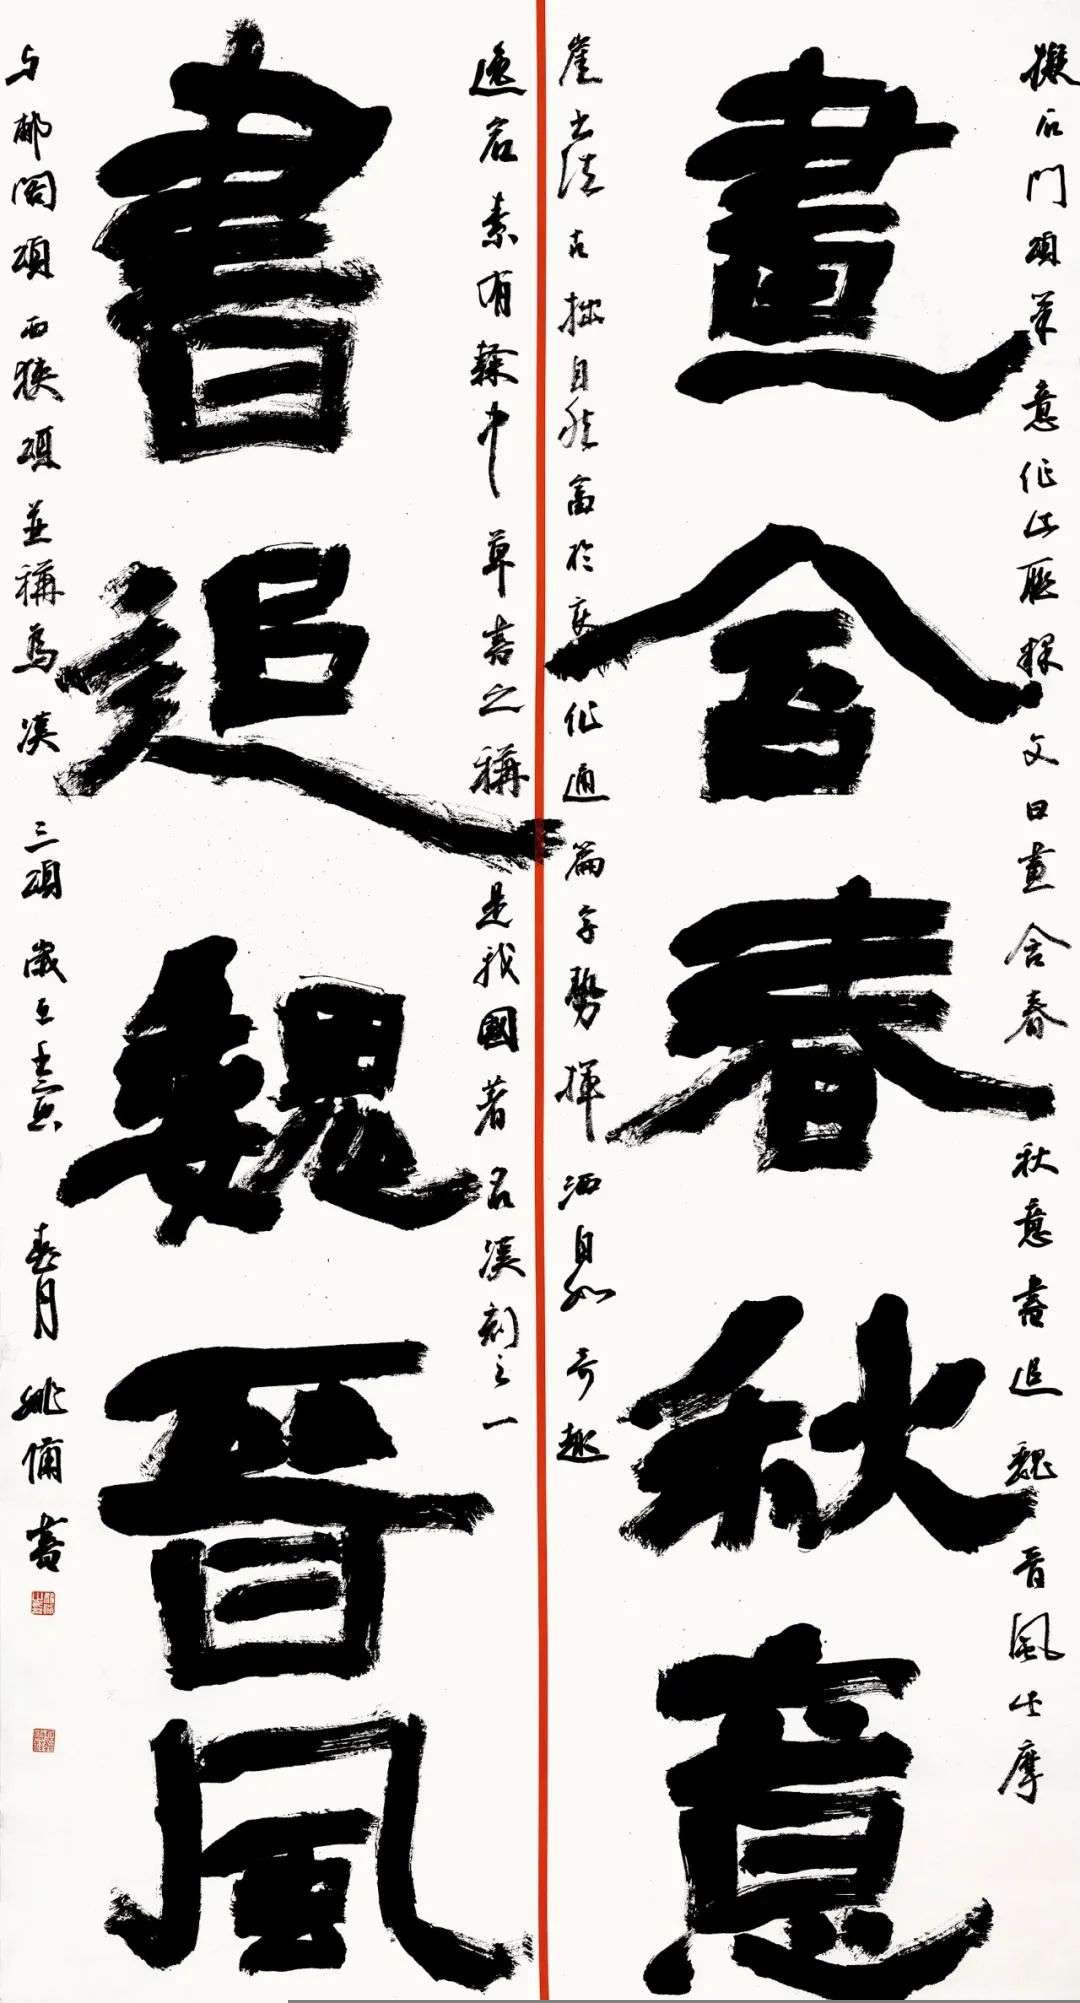 擬石門頌筆意作此聯釋文曰畫含春秋意書追魏晉風此摩
畫含春秋意
崖书法古拙自然富於变化通篇字勢揮洒自如奇趣
逸宕素有隸中草書之稱是我國著名漢刻之一
書追魏晉風
与郙閣頌西狹頌並稱為漢三頌歲春月姚書